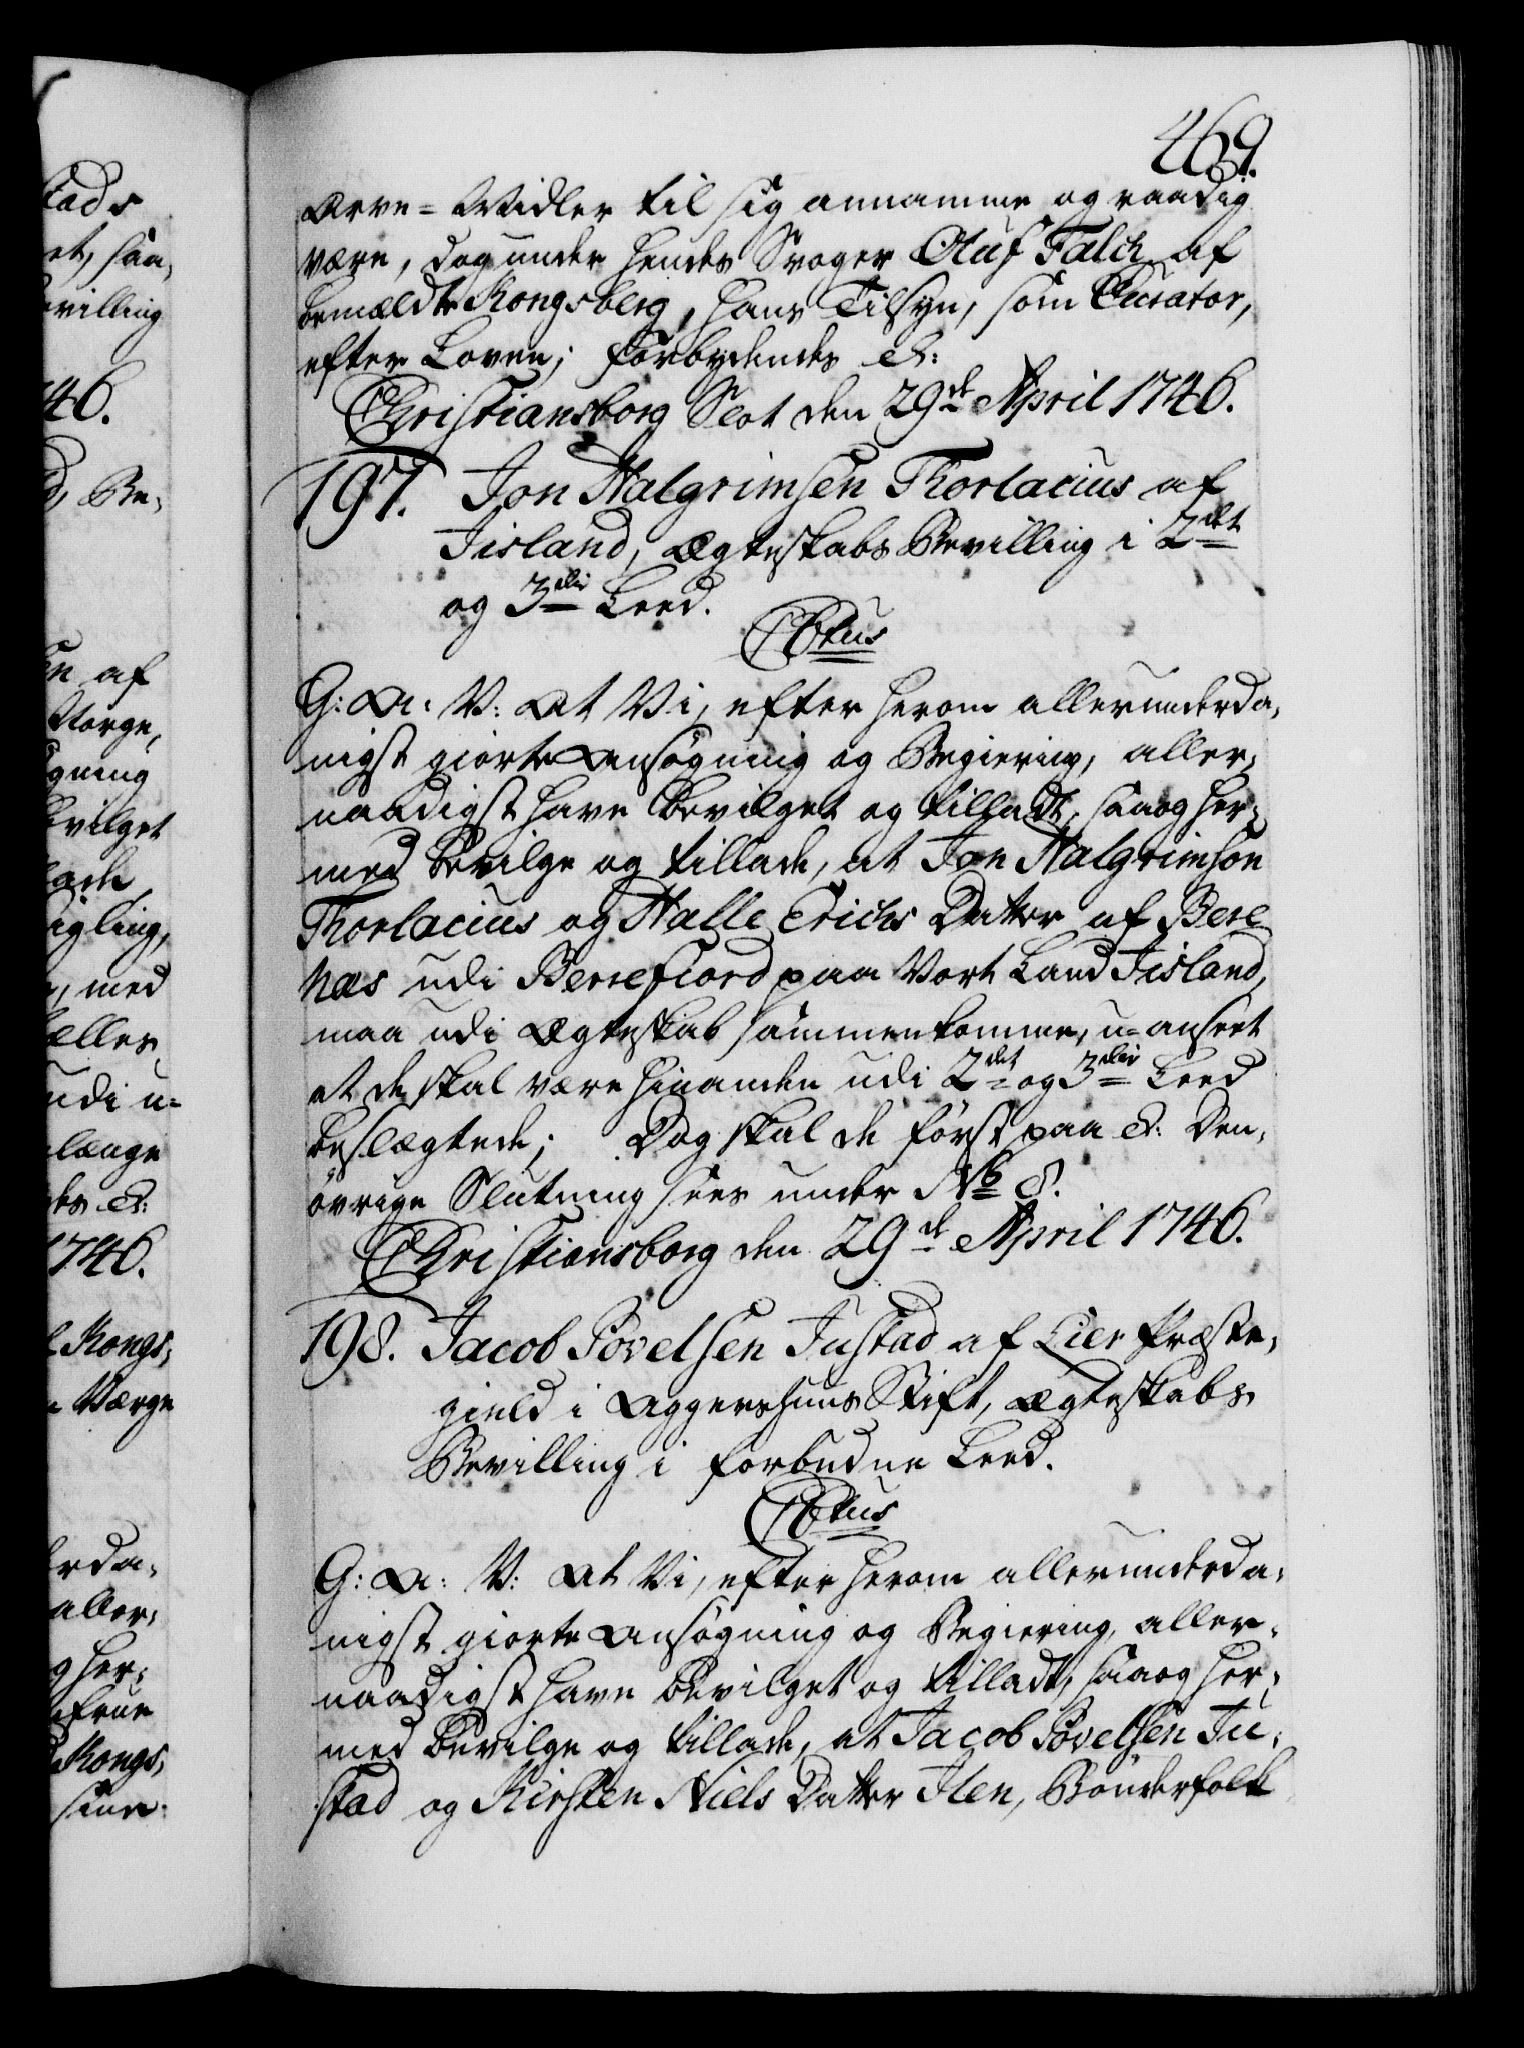 469.
Arve-Midler til sig annamme og raadig
være, dog under hendes Svoger Oluf Falch af
bemældte Kongsberg, hans Tilsyn, som Curator,
efter Loven; Forbydendes &:
Christiansborg Slot den 29de April 1746.
197. Jon Halgrimsen Thorlacius af
Jisland, Ægteskabs Bevilling i 2det
og 3die Leed.
C6tus
G: A: V: At Vi, efter herom allerunderda-
nigst giorte Ansøgning og Begiering, aller-
naadigst have bevilget og tilladt, saa og her-
med bevilge og tillade, at Jon Halgrimsön
Thorlacius og Halle Erichs Datter af Bere
næs udi Berrefiord paa Vort Land Jisland,
maa udi Ægteskab sammenkomme, u-anseet
at de skal være hinanden udi 2det og 3die Leed
beslægtede; Dog skal de først paa &: Den
övrige Slutning sees under No 8.
Christiansborg den 29de April 1746.
198. Jacob Povelsen Justad af Lier Præste-
gield i Aggershuus Stift, Ægteskabs
Bevilling i forbudne Leed.
C6tus
G: A: V: At Vi, efter herom allerunderda-
nigst giorte Ansøgning og Begiering, aller-
naadigst have bevilget og tilladt, saa og her-
med bevilge og tillade, at Jacob Povelsen Ju-
stad og Kirsten Niels Datter Ilen, Bönderfolk